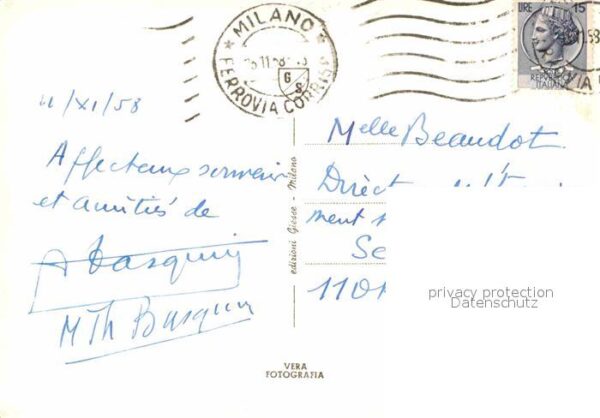 MILANO
FERROVIA CORRISP
11 58
G
S
LIRE 15
REPUBBLICA
ITALIANA
11/XI/58
Affectueux souvenir
et amitiés de
MTh Basquin
edizioni Giesse - Milano
VERA
FOTOGRAFIA
Melle Beaudot
Direct
ment
Se
110
privacy protection
Datenschutz